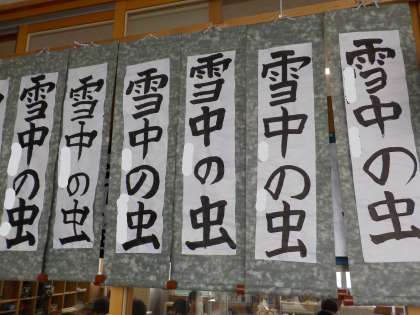 雪中の虫
雪中の虫
雪中の虫
雪中の虫
雪中の虫
雪中の虫